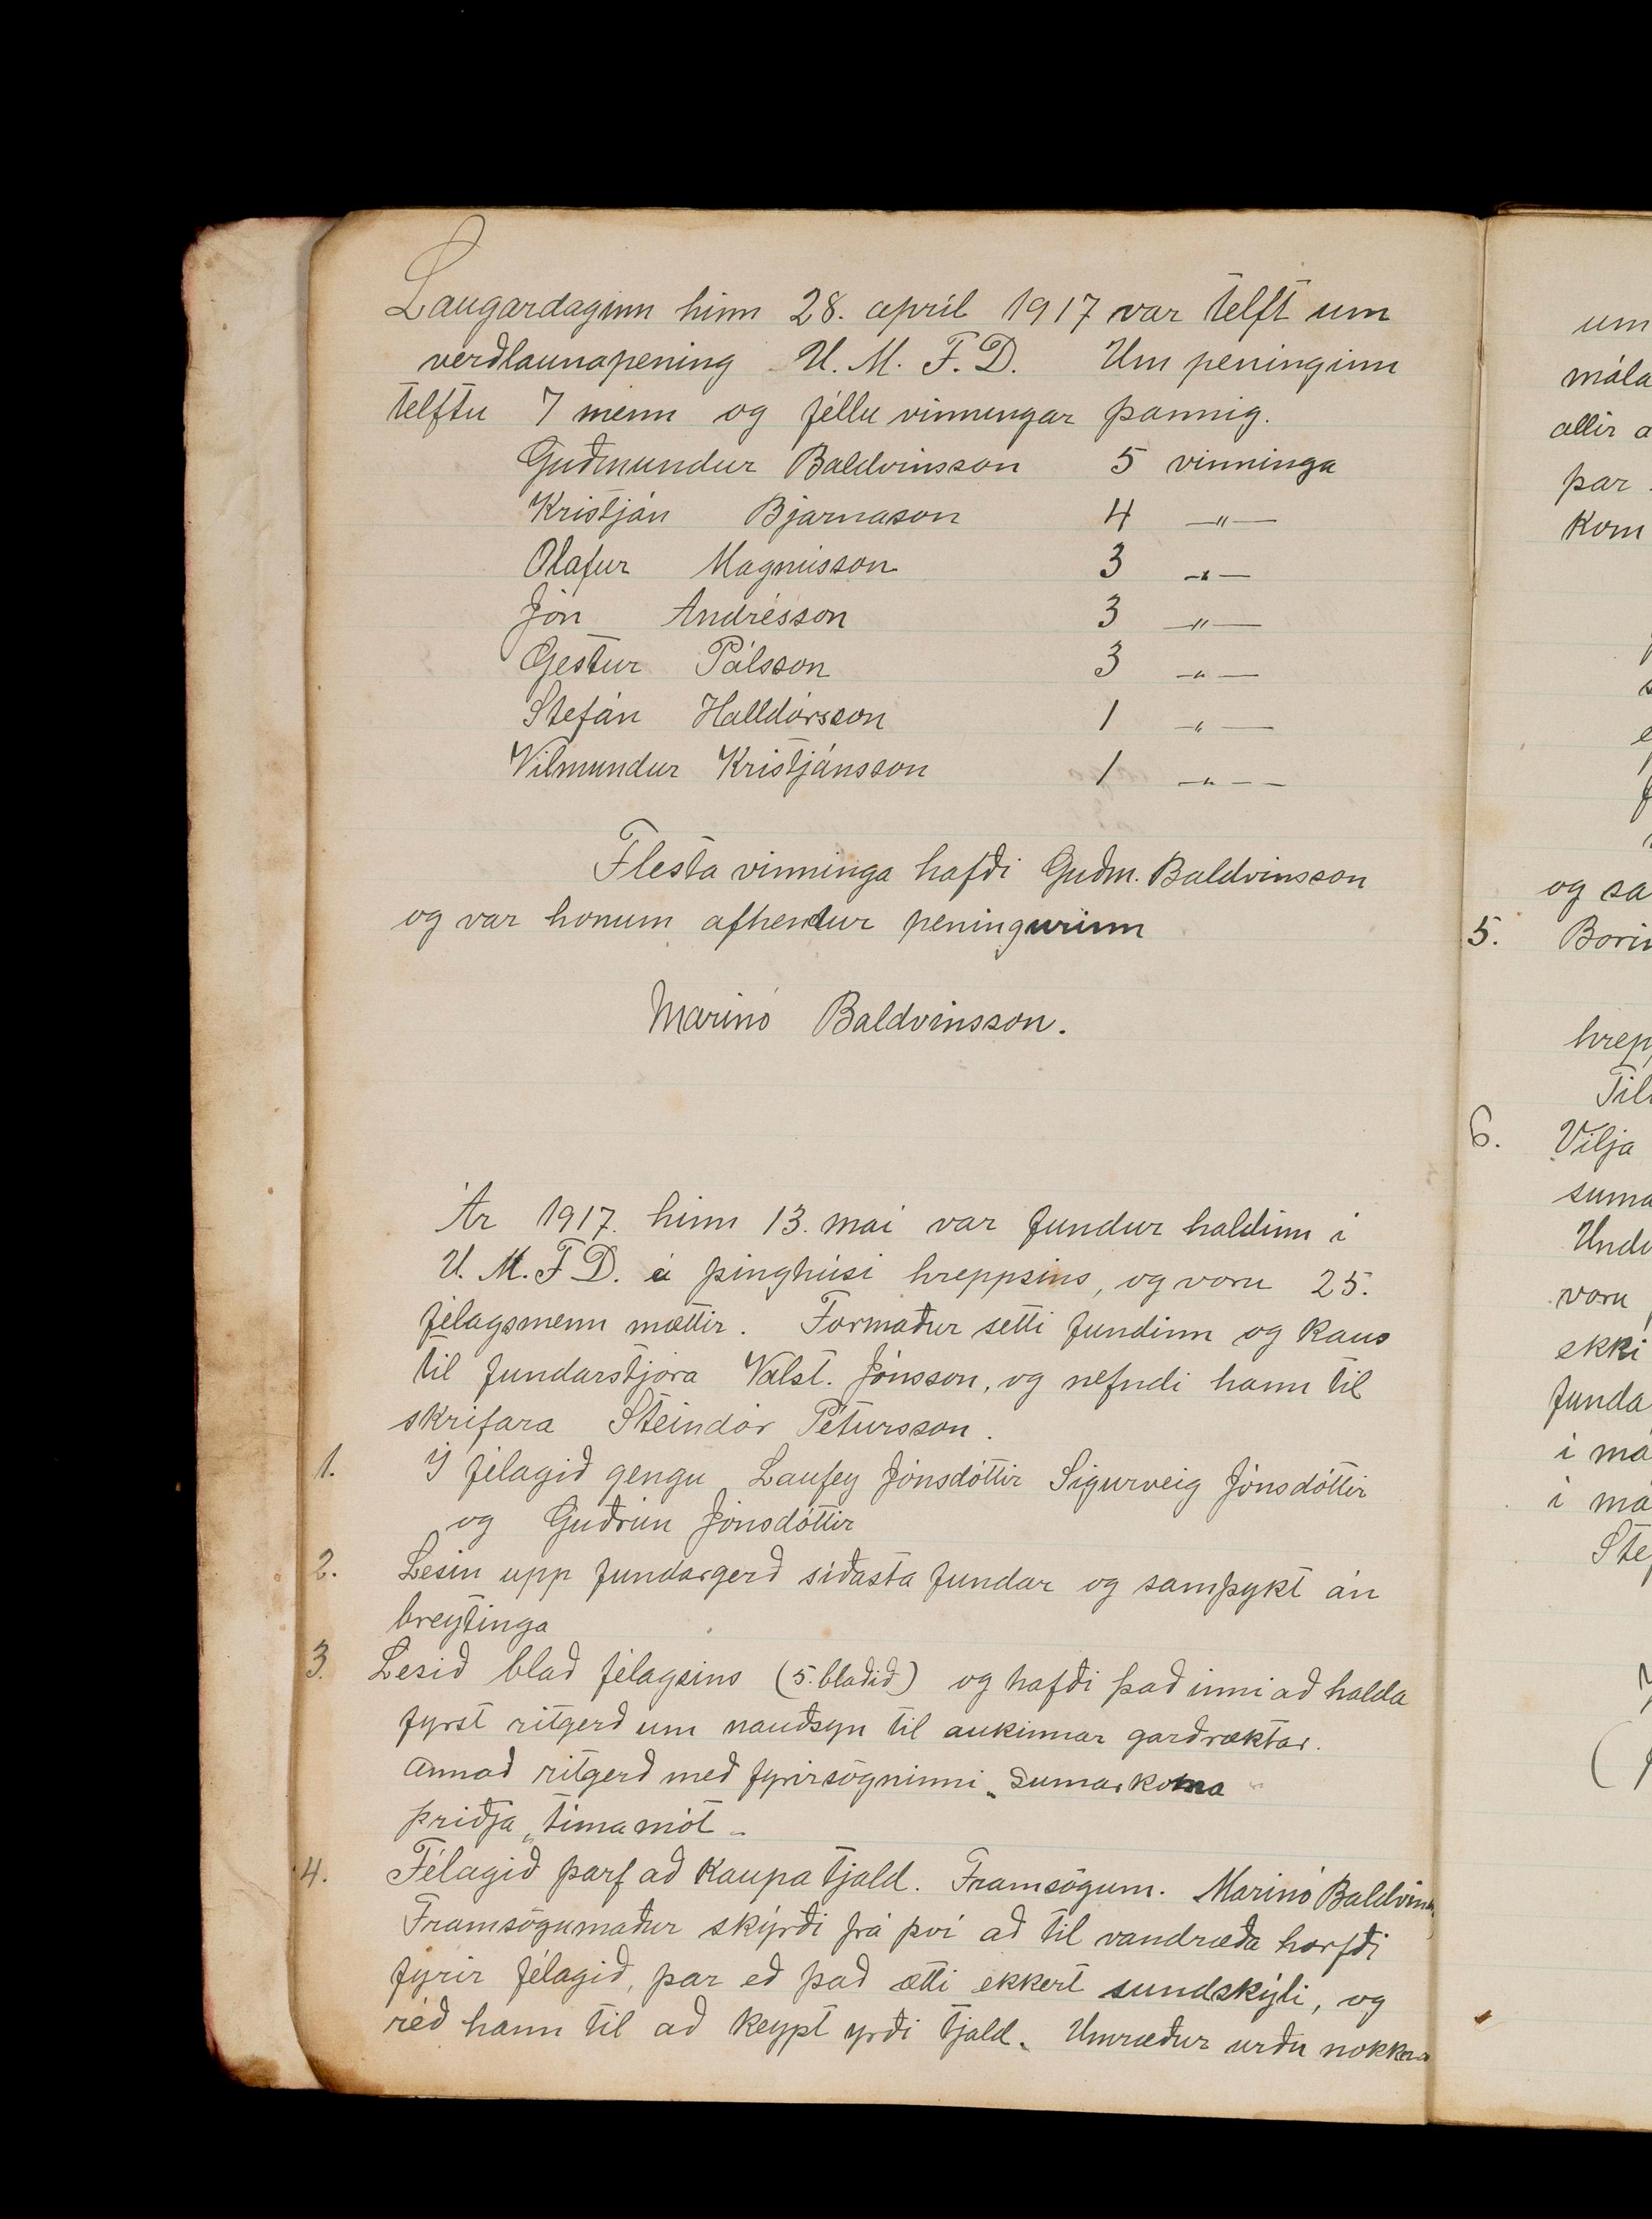 Laugardaginn hinn 28. apríl 1917 var telft um
verðlaunapening U. M. F. D. Um peninginn
telftu 7 menn og féllu vinningar þannig.
Guðmundur Baldvinsson 5 vinninga
Kristján Bjarnason 4 —"—
Olafur Magnússon 3 —"—
Jón Andrésson 3 —"—
Gestur Pálsson 3 —"—
Stefán Halldórsson 1 —"—
Vilmundur Kristjánsson 1 —"—
Flesta vinninga hafði Guðm. Baldvinsson
og var honum afhentur peningurinn
Marinó Baldvinsson.
Ár 1917. hinn 13. mai var fundur haldinn i
U. M. F D. á þinghúsi hreppsins, og voru 25.
félagsmenn mættir. Formaður setti fundinn og kaus
til fundarstjóra Valst. Jónsson, og nefndi hann til
skrifara Steindór Pétursson.
1. Í félagið gengu Laufey Jónsdóttir Sigurveig Jónsdóttir
og Guðrún Jónsdóttir
2. Lesin upp fundargerð síðasta fundar og samþykt án
breytinga
3. Lesið blað félagsins (5. blaðið) og hafði það inni að halda
fyrst ritgerð um nauðsyn til aukinnar garðræktar.
Annað ritgerð með fyrirsögninni „Sumarkoma"
þriðja „tímamót"
4. Félagið þarf að kaupa tjald. Framsögum. Marinó Baldvins
Framsögumaður skýrði frá því að til vandræða horfði
fyrir félagið, þar eð það ætti ekkert sundskýli, og
réð hann til að keypt yrði tjald. Umræður urðu nokkrar
um
mála
allir a
þar
kom
og sa
5. Borin
hrepp
Till
6. Vilja
suma
Undi
voru
ekki
funda
i má
i má
Stef